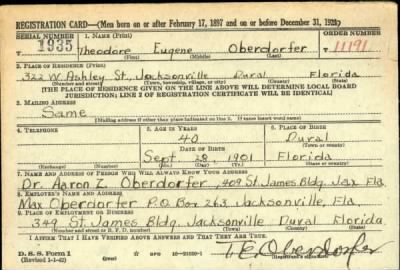 REGISTRATION CARD—(Men born on or after February 17, 1897 and on or before December 31, 1921)
SERIAL NUMBER 1. NAME (Print) ORDER NUMBER
1935 Theodore Eugene Oberdorfer 11191
(First) (Middle) (Last)
2. PLACE OF RESIDENCE (Print)
322 W. Ashley St., Jacksonville Duval Florida
(Number and street) (Town, township, village, or city) (County) (State)
[THE PLACE OF RESIDENCE GIVEN ON THE LINE ABOVE WILL DETERMINE LOCAL BOARD
JURISDICTION; LINE 2 OF REGISTRATION CERTIFICATE WILL BE IDENTICAL]
3. MAILING ADDRESS
Same
[Mailing address if other than place indicated on line 2. If same insert word same]
4. TELEPHONE 5. AGE IN YEARS 6. PLACE OF BIRTH
40 Duval
DATE OF BIRTH (Town or county)
Sept. 28, 1901 Florida
(Exchange) (Number) (Mo.) (Day) (Yr.) (State or country)
7. NAME AND ADDRESS OF PERSON WHO WILL ALWAYS KNOW YOUR ADDRESS
Dr. Aaron Z. Oberdorfer, 409 St. James Bldg. Jax Fla.
8. EMPLOYER'S NAME AND ADDRESS
Max Oberdorfer P.O. Box 263, Jacksonville, Fla.
9. PLACE OF EMPLOYMENT OR BUSINESS
349 St. James Bldg. Jacksonville Duval Florida
(Number and street or R. F. D. number) (Town) (County) (State)
I AFFIRM THAT I HAVE VERIFIED ABOVE ANSWERS AND THAT THEY ARE TRUE.
D. S. S. Form 1
(Revised 1-1-42) GPO T.E. Oberdorfer
(Registrant's signature)